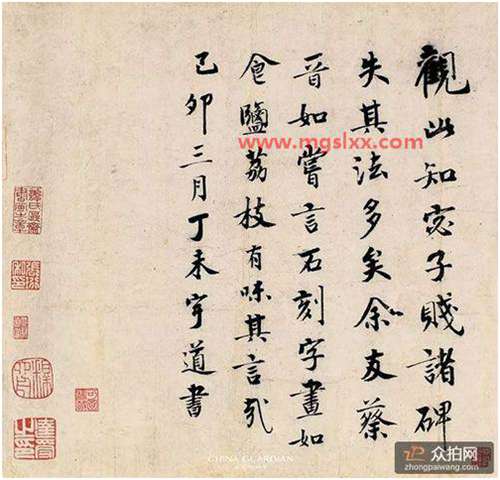 觀此知宓子賤諸碑
失其法多矣余友蔡
晉如嘗言石刻字畫如
食鹽荔枝有味其言哉
己卯三月丁未宇道書
www.mgslxx.com
CHINA GUARDIAN
众拍网
zhongpaiwang.com